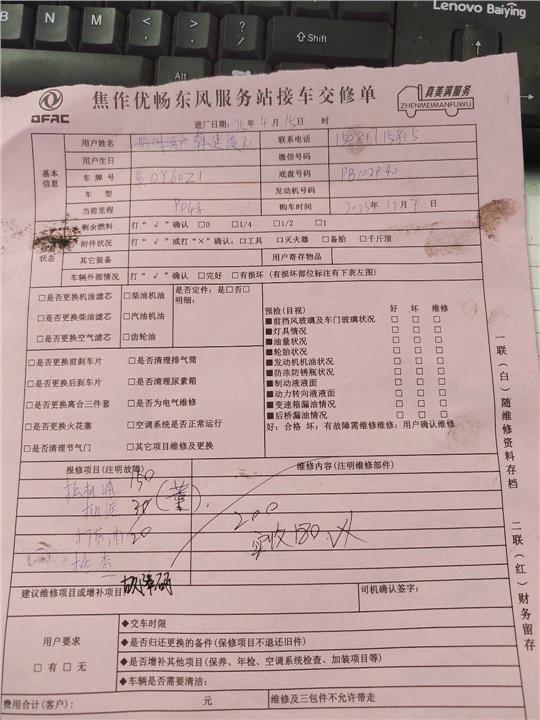 Lenovo Baiying
Shift
N
M
Alt
Ctrl
DFAC
焦作优畅东风服务站接车交修单
真美满服务
ZHENMEIMANFUWU
进厂日期：25年4月15日 时
基本信息
用户姓名
联系电话
用户生日
微信号码
车牌号
底盘号码
车型
发动机号码
当前里程
购车时间 2023年12月7日
状态
剩余燃料 打“√”确认 □0 □1/4 □1/2 □1
附件状况 打“√”或打“×”确认：□工具 □灭火器 □备胎 □千斤顶
其它装备
用户寄存物品
车辆外部情况 打“√”确认 □完好 □有损坏（有损坏部位标注有下表左图）
□是否更换机油滤芯
□是否更换柴油滤芯
□是否更换空气滤芯
□柴油机油
□汽油机油
□齿轮油
是否定件：是□否□
明细：
□是否更换前刹车片
□是否更换后刹车片
□是否更换离合三件套
□是否更换火花塞
□是否清理节气门
□是否清理排气筒
□是否清理尿素箱
□是否为电气维修
□空调系统是否正常运行
□其它项目维修及更换
预检（目视） 好 坏 维修
■前挡风玻璃及车门玻璃状况 □ □ □
■灯具情况 □ □ □
■油量状况 □ □ □
■轮胎状况 □ □ □
■发动机机油状况 □ □ □
■防冻防锈瓶状况 □ □ □
■制动液液面 □ □ □
■动力转向液液面 □ □ □
■变速箱漏油情况 □ □ □
■后桥漏油情况 □ □ □
好：合格 坏：有故障需维修维修：用户确认维修
报修项目（注明故障）
维修内容（注明维修部件）
换机油 150
机滤 30（董）
打黄油 20
检查
200
实收180
建议维修项目或增补项目
故障码
司机确认签字：
用户要求
□有□无
◆交车时限
◆是否归还更换的备件（保修项目不退还旧件）
◆是否增补其他项目（保养、年检、空调系统检查、加装项目等）
◆车辆是否需要清洁：
费用合计（客户）： 元
维修及三包件不允许带走
一联（白）随维修资料存档
二联（红）财务留存